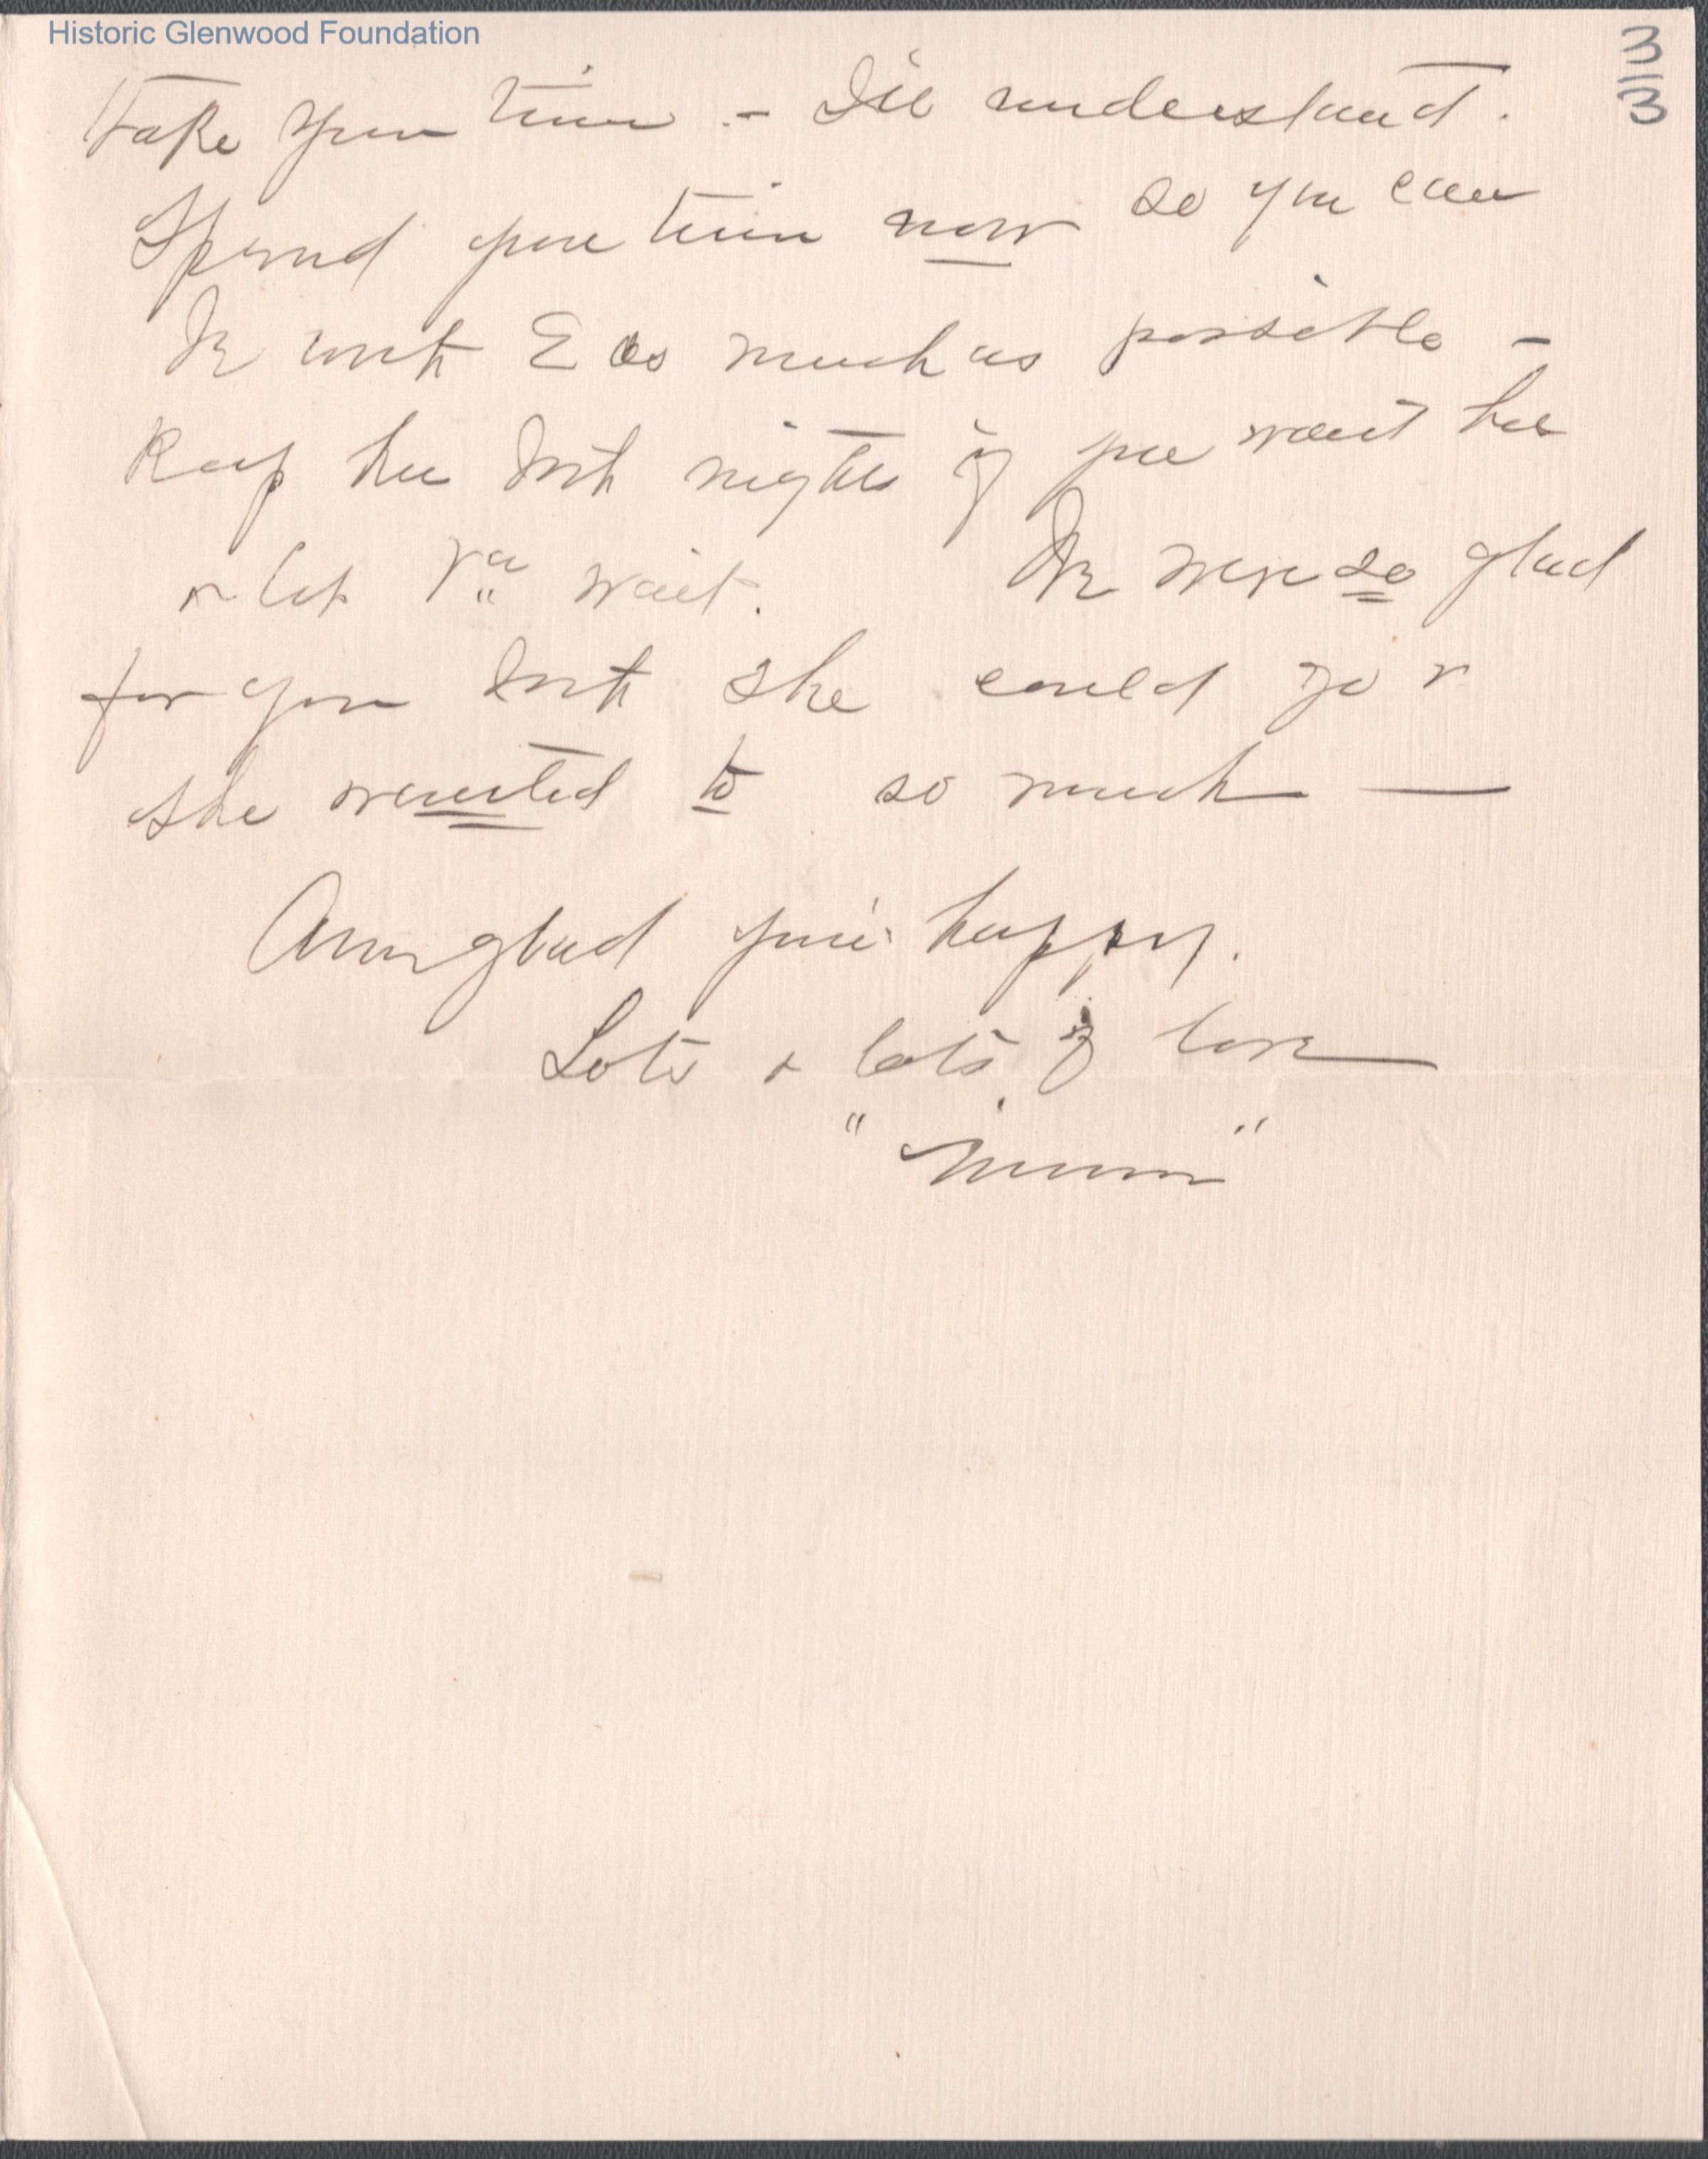 Historic Glenwood Foundation
3/3
take your time - I'll understand.
Spend your time now so you can
be with E as much as possible -
Keep her both nights if you want her
or let Va wait. We were so glad
for you both she could go &
she wanted to so much —
Am glad you're happy.
Lots & lots of love
"Mimi"